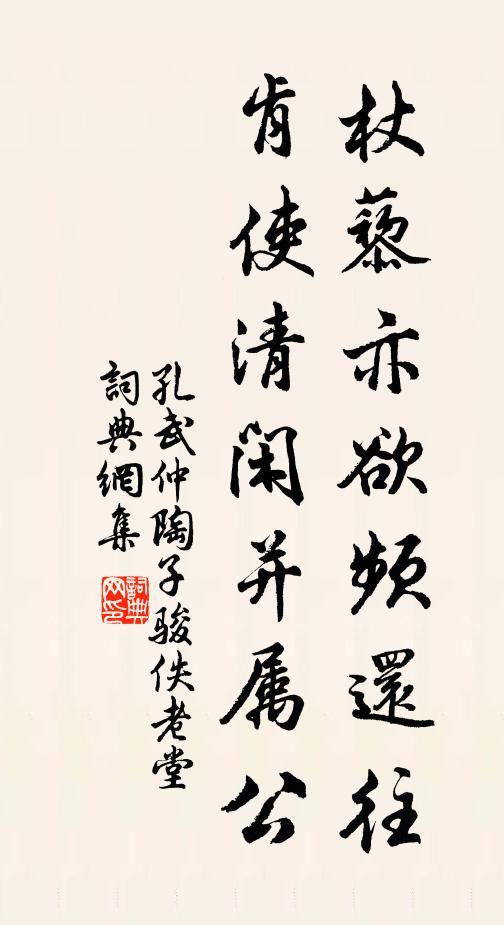 杖藜亦欲頻還往
肯使清閑并属公
孔武仲陶子駿佚老堂
詞典網集
詞典網印